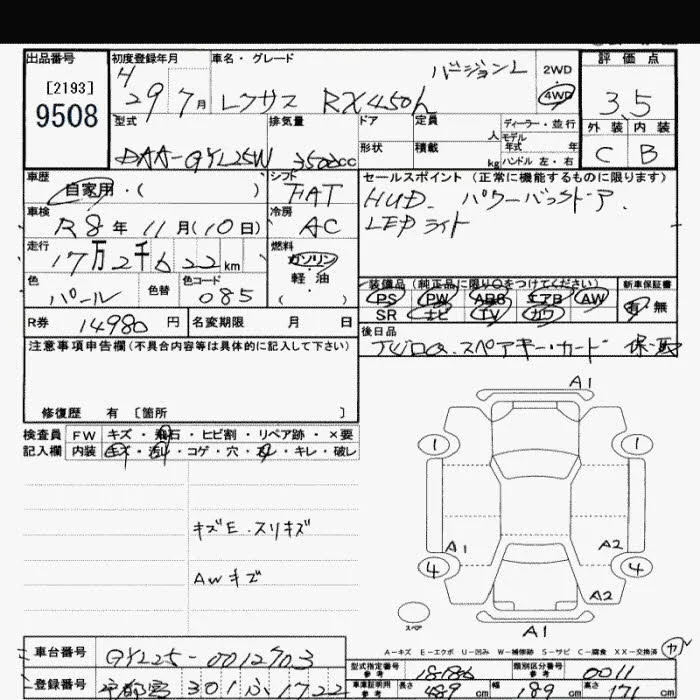 出品番号
[2193]
9508
初度登録年月
H 29 7月
車名・グレード
バージョンL
レクサス RX450h
2WD
4WD
評価点
3.5
外装 内装
C B
型式
DAA-GYL25W
排気量
3500cc
ドア
形状
定員 人
積載 kg
ディーラー・並行
モデル年式 年
ハンドル 左・右
車歴
自家用・( )
シフト
FAT
車検
R8年11月(10日)
冷房
AC
走行
17万2千622km
燃料
ガソリン
軽油
( )
色
パール
色替
色コード
085
セールスポイント(正常に機能するものに限ります)
HUD. パワーバックドア.
LEDライト
装備品(純正品に限り○をつけてください)
PS PW ABS エアB AW
SR ナビ TV カワ
新車保証書
有・無
R券 14980円
名変期限 月 日
後日品
スペアキー・カード 保・取
注意事項申告欄(不具合内容等は具体的に記入して下さい)
修復歴 有〔箇所 〕
検査員記入欄
FW キズ・飛石・ヒビ割・リペア跡・×要
内装 キズ・汚れ・コゲ・穴・スレ・キレ・破レ
キズE.スリキズ
AWキズ
A1
1 1
A1 A2
4 4
A2
スペア
A1
A-キズ E-エクボ U-凹み W-補修跡 S-サビ C-腐食 XX-交換済
車台番号
GYL25-0012703
登録番号
宇都宮 301 ふ 1722
型式指定番号 参考
18186
類別区分番号 参考
0011
車庫証明用 参考
長さ 489cm 幅 189cm 高さ 171cm